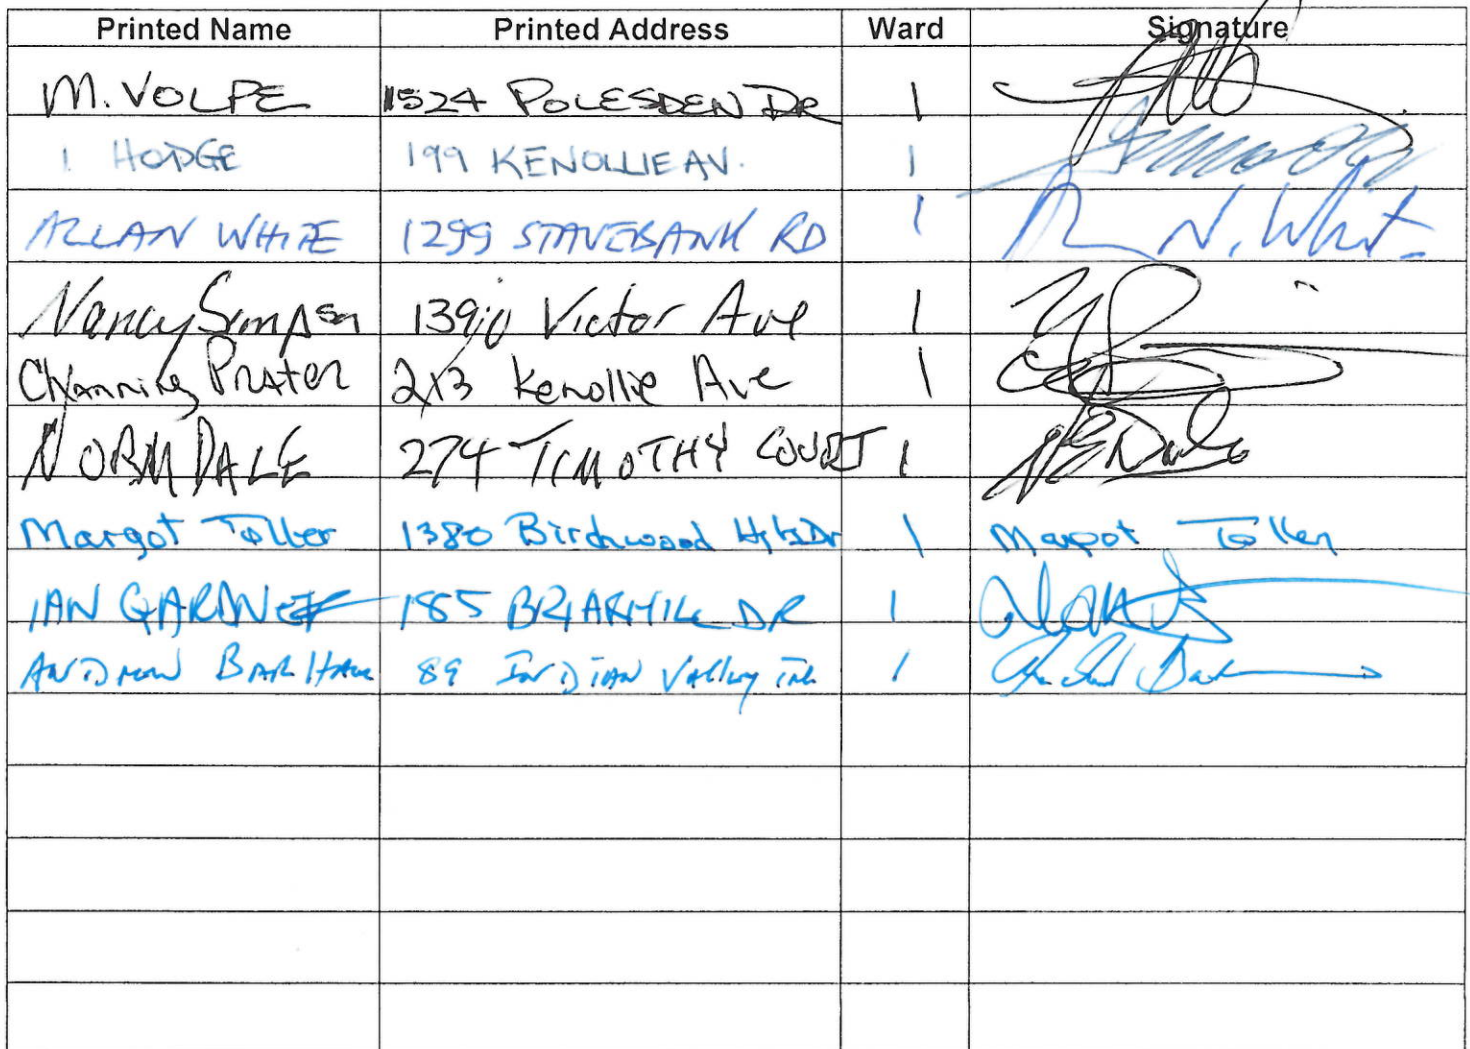 Printed Name Printed Address Ward Signature
M. VOLPE 1524 POLESDEN DR 1
I HODGE 199 KENOLLIE AV. 1
ALLAN WHITE 1299 STAVEBANK RD 1 N. White
Nancy Simpson Victor Ave 1
Channing Prater 213 Kenollie Ave 1
NORM DALE 274 TIMOTHY COURT 1
Margot Toller 1380 Birchwood Hts Dr 1 Margot Toller
IAN GARDNER 185 BRIARHILL DR 1
ANDREW 89 INDIAN Valley Trl 1